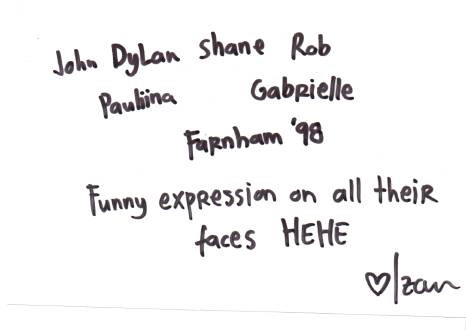 John Dylan Shane Rob
Pauliina Gabrielle
Farnham '98
Funny expression on all their
faces HEHE
♡/zan